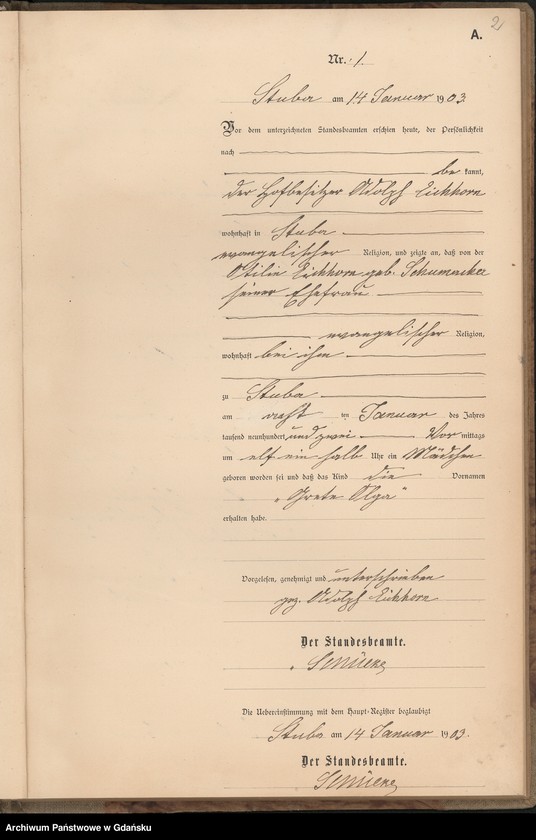 2
A.
Nr. 1.
Stuba am 14 Januar 1903
Vor dem unterzeichneten Standesbeamten erschien heute, der Persönlichkeit
nach
bekannt,
der Hofbesitzer Adolph Eichhorn
wohnhaft in Stuba
evangelischer Religion, und zeigte an, daß von der
Otilie Eichhorn geb. Schumacher
seiner Ehefrau
evangelischer Religion,
wohnhaft bei ihm
zu Stuba
am acht ten Januar des Jahres
tausend neunhundert und zwei Vor mittags
um elf ein halb Uhr ein Mädchen
geboren worden sei und daß das Kind die Vornamen
„Grete Olga"
erhalten habe.
Vorgelesen, genehmigt und unterschrieben
gez. Adolph Eichhorn
Der Standesbeamte.
Die Uebereinstimmung mit dem Haupt-Register beglaubigt
Stuba am 14 Januar 1903.
Der Standesbeamte.
Archiwum Państwowe w Gdańsku